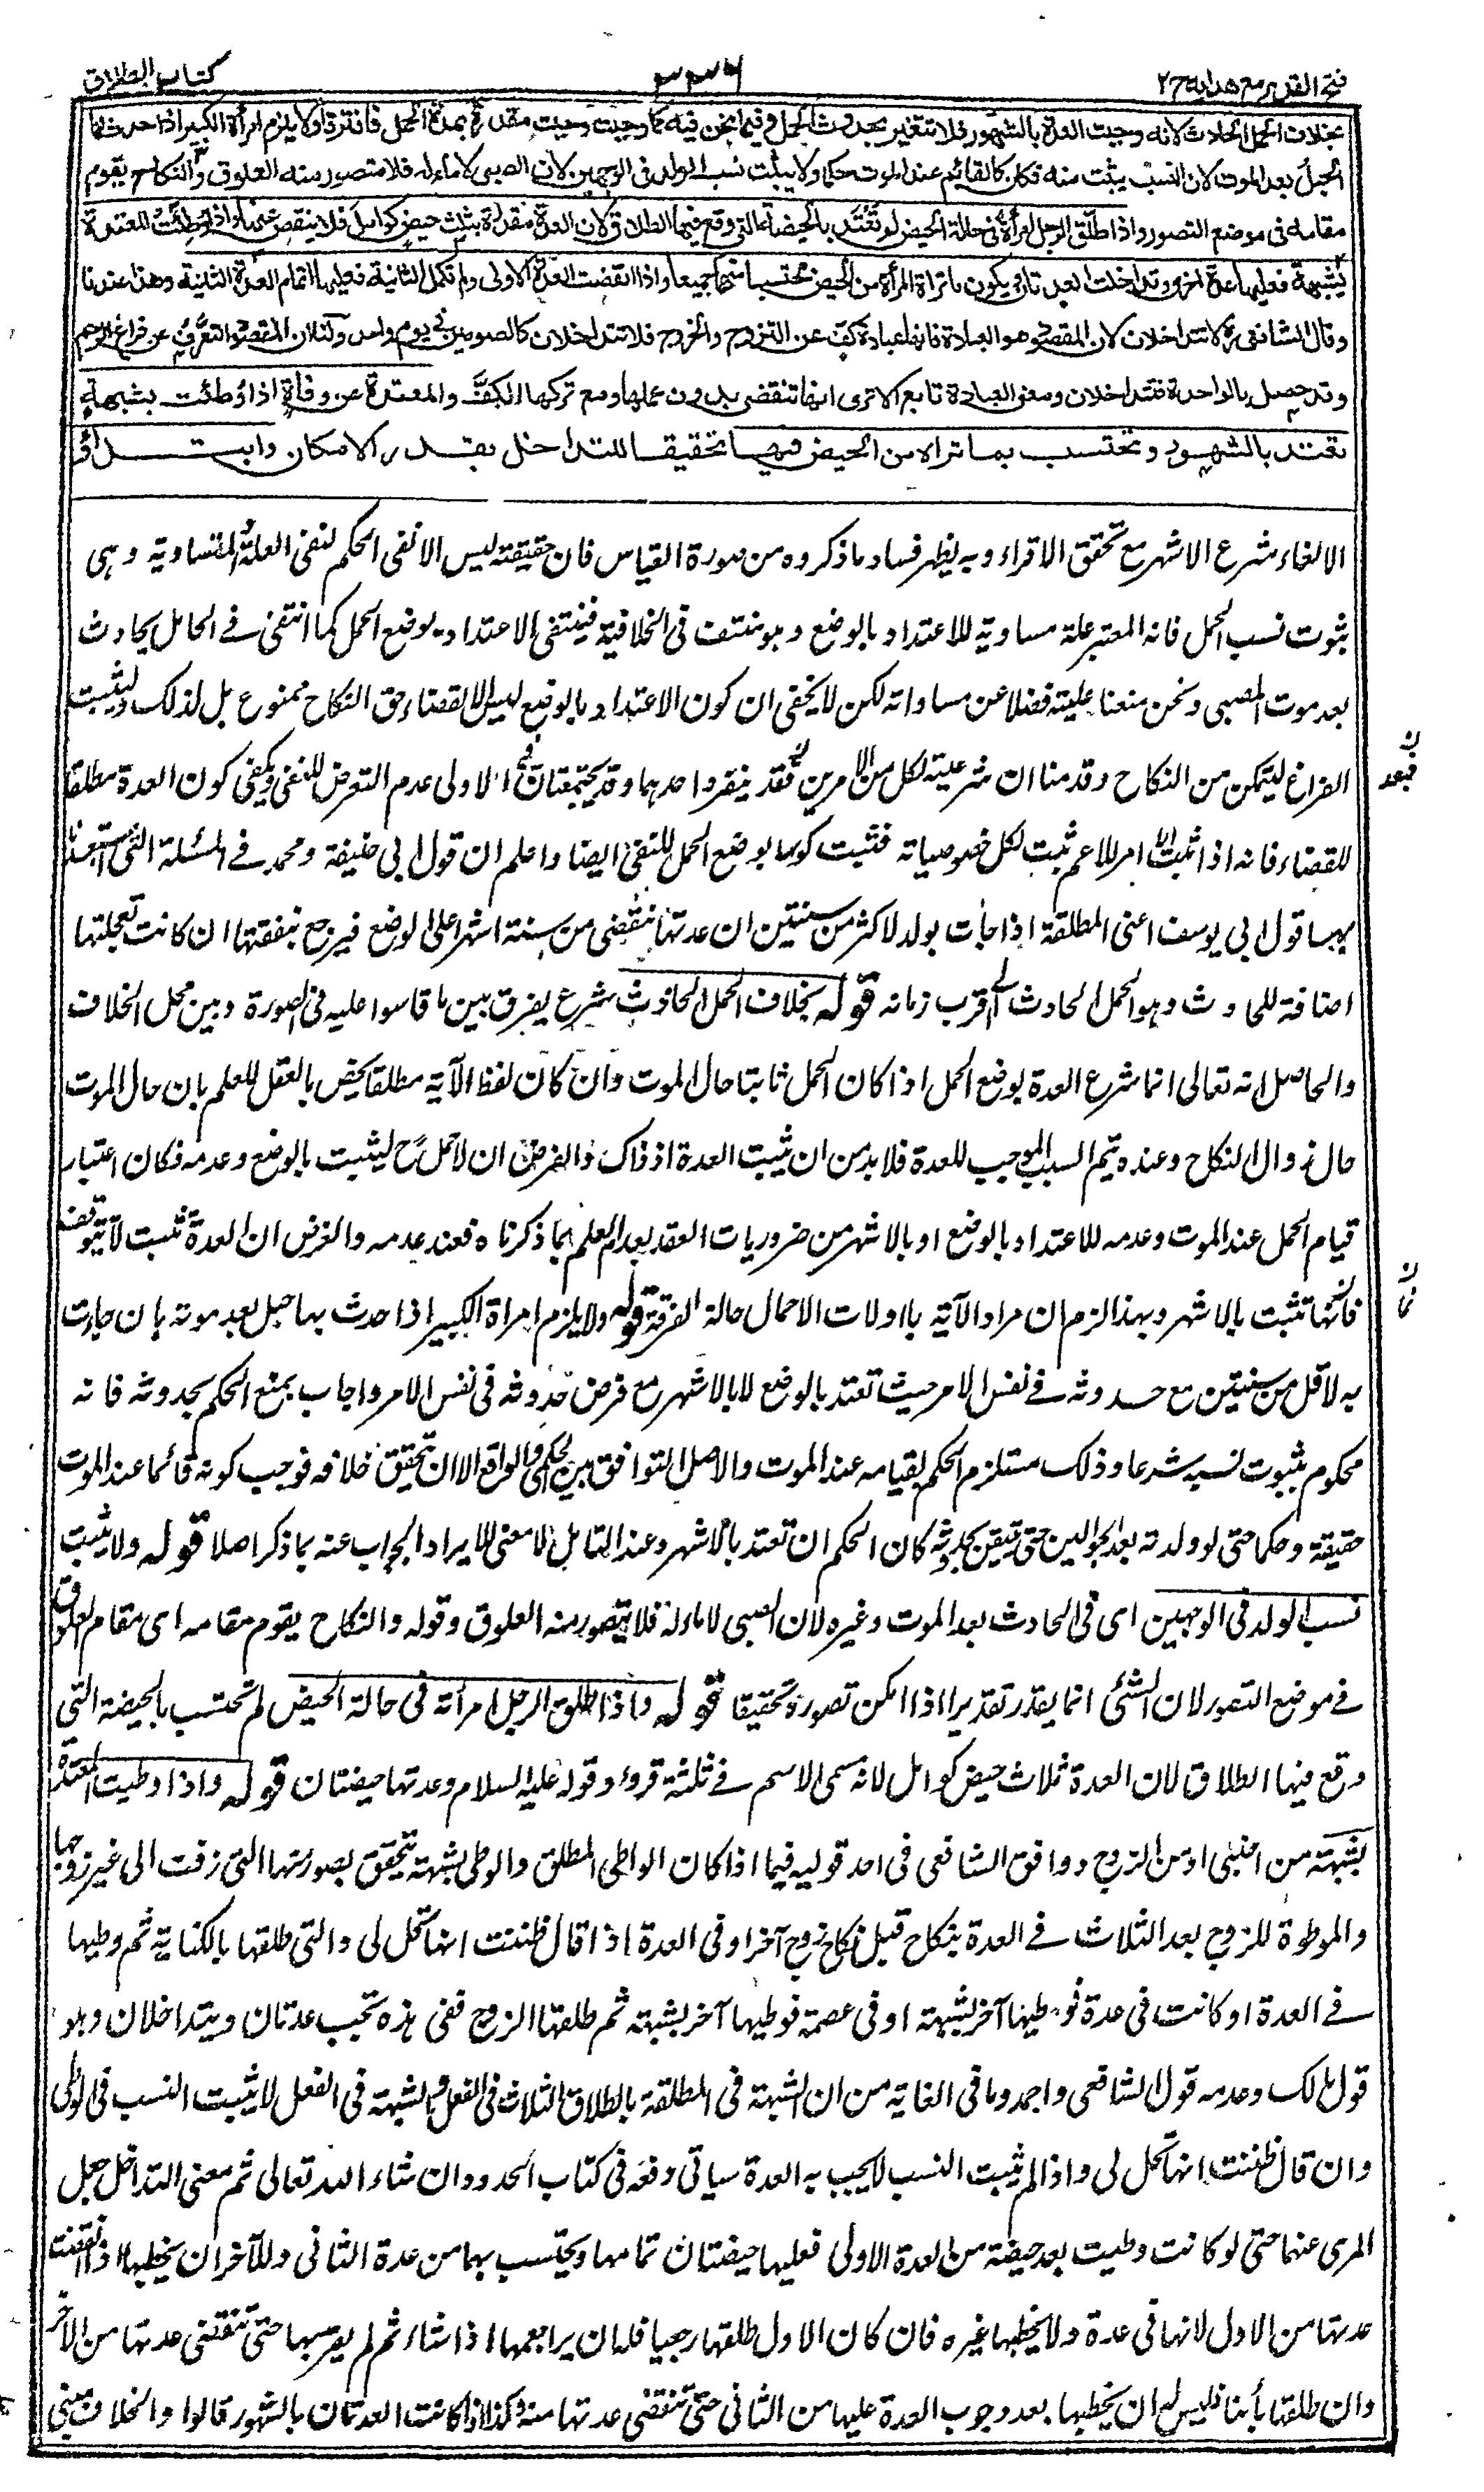 فتح القدير مع هدايه ج ٢
٣٣٦
كتاب الطلاق
بخلاف الحمل الحادث لانه وجبت العدة بالشهور فلا تتغير بحدوث الحمل وفيما نحن فيه كما وجبت وجبت مقدرة بمدة الحمل فافترقا ولا يلزم امرأة الكبير اذا حدث لها
الحبل بعد الموت لان النسب يثبت منه فكان كالقائم عند الموت حكما ولا يثبت نسب الولد فى الوجهين لان الصبى لا ماء له فلا متصور منه العلوق والنكاح يقوم
مقامه فى موضع التصور واذا طلق الرجل امرأته فى حالة الحيض لم تعتد بالحيضة التى وقع فيها الطلاق لان العدة مقدرة بثلث حيض كوامل فلا ينقص عنها واذا وطئت المعتدة
بشبهة فعليها عدة اخرى وتداخلت العدتان ويكون ما تراه المرأة من الحيض محتسبا منهما جميعا واذا انقضت العدة الاولى ولم تكمل الثانية فعليها اتمام العدة الثانية وهذا عندنا
وقال الشافعى ره لا تتداخلان لان المقصود هو العبادة فانها عبادة كف عن التزوج والخروج فلا تتداخلان كالصومين فى يوم واحد ولنا ان المقصود التعرف عن فراغ الرحم
وقد حصل بالواحدة فتتداخلان ومعنى العبادة تابع الا ترى انها تنقضى بدون علمها ومع تركها الكف والمعتدة عن وفاة اذا وطئت بشبهة
تعتد بالشهور وتحتسب بما تراه من الحيض فيها تحقيقا للتداخل بقدر الامكان وابتداؤ
الا الغاء شرع الاشهر مع تحقق الاقراء وبه يظهر فساد ما ذكروه من صورة القياس فان حقيقته ليس الا نفى الحكم لنفى العلة المتساوية وهى
ثبوت نسب الحمل فانه المعتبر علة مساوية للاعتداد بالوضع وهو منتف فى الخلافية فينتفى الاعتداد بوضع الحمل كما انتفى فى الحامل بحادث
بعد موت الصبى ونحن منعنا عليته فضلا عن مساواته لكن لا يخفى ان كون الاعتداد بالوضع ليس الا لقضاء حق النكاح ممنوع بل لذلك وليثبت
الفراغ ليتمكن من النكاح وقدمنا ان شرعيته لكل من الامرين فقد ينفرد احدهما وقد يجتمعان فالاولى عدم التعرض للنفى ويكفى كون العدة مطلقا
فبعد
للقضاء فانه اذا ثبت امر للاعم ثبت لكل خصوصياته فثبت كونها بوضع الحمل للنفى ايضا واعلم ان قول ابى حنيفة ومحمد فى المسئلة التى استبعد
بها قول ابى يوسف اعنى المطلقة اذا جاءت بولد لاكثر من سنتين ان عدتها تنقضى من ستة اشهر على الوضع فيرجع بنفقتها ان كانت تعجلتها
اضافة للحادث وهو الحمل الحادث الى اقرب زمانه قوله بخلاف الحمل الحادث شرع يفرق بين ما قاسوا عليه فى الصورة وبين محل الخلاف
والحاصل انه تعالى انما شرع العدة بوضع الحمل اذا كان الحمل ثابتا حال الموت وان كان لفظ الآية مطلقا يخص بالعقل للعلم بان حال الموت
حال زوال النكاح وعنده يتم السبب الموجب للعدة فلا بد من ان يثبت العدة اذ ذاك والفرض ان لا حمل ح ليثبت بالوضع وعدمه فكان اعتبار
قيام الحمل عند الموت وعدمه للاعتداد بالوضع او بالاشهر من ضروريات العقد بعد العلم بما ذكرناه فعند عدمه والغرض ان العدة تثبت لا تتوقف
فانها تثبت بالاشهر وبهذا لزم ان مراد الآية باولات الاحمال حالة الفرقة قوله ولا يلزم امرأة الكبير اذا حدث بها حبل بعد موته بان جاءت
به لاقل من سنتين مع حدوثه فى نفس الامر حيث تعتد بالوضع لا بالاشهر مع فرض حدوثه فى نفس الامر واجاب بمنع الحكم بحدوثه فانه
محكوم بثبوت نسبه شرعا وذلك مستلزم الحكم بقيامه عند الموت والاصل التوافق بين الحكمى والواقع الا ان تحقق خلافه فوجب كونه قائما عند الموت
حقيقة وحكما حتى لو ولدته بعد الحولين حتى تيقن بحدوثه كان الحكم ان تعتد بالاشهر وعند التامل لا معنى للايراد الجواب عنه بما ذكر اصلا قوله ولا يثبت
نسب الولد فى الوجهين اى فى الحادث بعد الموت وغيره لان الصبى لا ماء له فلا يتصور منه العلوق وقوله والنكاح يقوم مقامه اى مقام العلوق
فى موضع التصور لان الشئ انما يقدر تقديرا اذا امكن تصوره تحقيقا قوله واذا طلق الرجل امرأته فى حالة الحيض لم تحتسب بالحيضة التى
وقع فيها الطلاق لان العدة ثلاث حيض كوامل لانه مسمى الاسم فى ثلثة قروء وقوله عليه السلام وعدتها حيضتان قوله واذا وطيت المعتدة
بشبهة من اجنبى او من الزوج ووافق الشافعى فى احد قوليه فيما اذا كان الواطئ المطلق والوطى بشبهة يتحقق بصور منها التى زفت الى غير زوجها
والموطوة للزوج بعد الثلاث فى العدة بنكاح قبل نكاح زوج آخر او فى العدة اذا قال ظننت انها تحل لى والتى طلقها بالكناية ثم وطيها
فى العدة او كانت فى عدة فوطيها آخر بشبهة او فى عصمة فوطيها آخر بشبهة ثم طلقها الزوج ففى هذه تجب عدتان ويتداخلان وهو
قول مالك وعدمه قول الشافعى واحمد وما فى الغاية من ان الشبهة فى المطلقة بالطلاق الثلاث فى الفعل والشبهة فى الفعل لا يثبت النسب فى الوطى
وان قال ظننت انها تحل لى واذا لم يثبت النسب لا يجب به العدة سياتى دفعه فى كتاب الحدود ان شاء الله تعالى ثم معنى التداخل جعل
المرئى عنهما حتى لو كانت وطيت بعد حيضة من العدة الاولى فعليها حيضتان تمامها ويحتسب بهما من عدة الثانى وللآخر ان يخطبها اذا انقضت
عدتها من الاول لانها فى عدة ولا يخطبها غيره فان كان الاول طلقها رجعيا فله ان يراجعها اذا شاء ثم لم يقربها حتى تنقضى عدتها من الآخر
وان طلقها بأئنا فليس له ان يخطبها بعد وجوب العدة عليها من الثانى حتى تنقضى عدتها منه وكذا اذا كانت العدتان بالشهور قالوا والخلاف مبنى